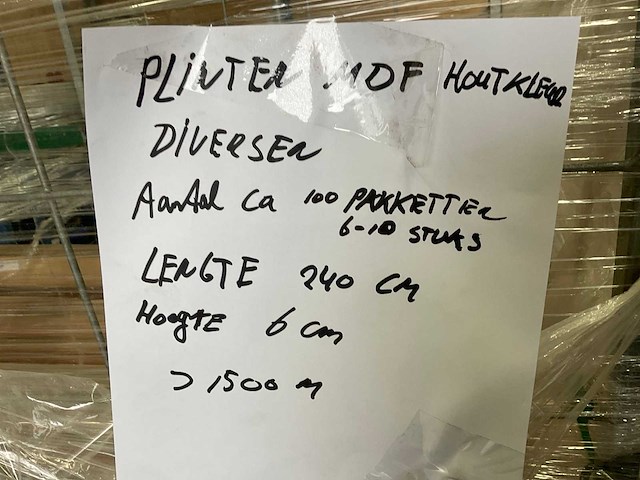 PLINTEN MDF HOUTKLEUR
DIVERSEN
Aantal ca 100 PAKKETTEN
6-10 STUKS
LENGTE 240 CM
HOOGTE 6 cm
> 1500 m